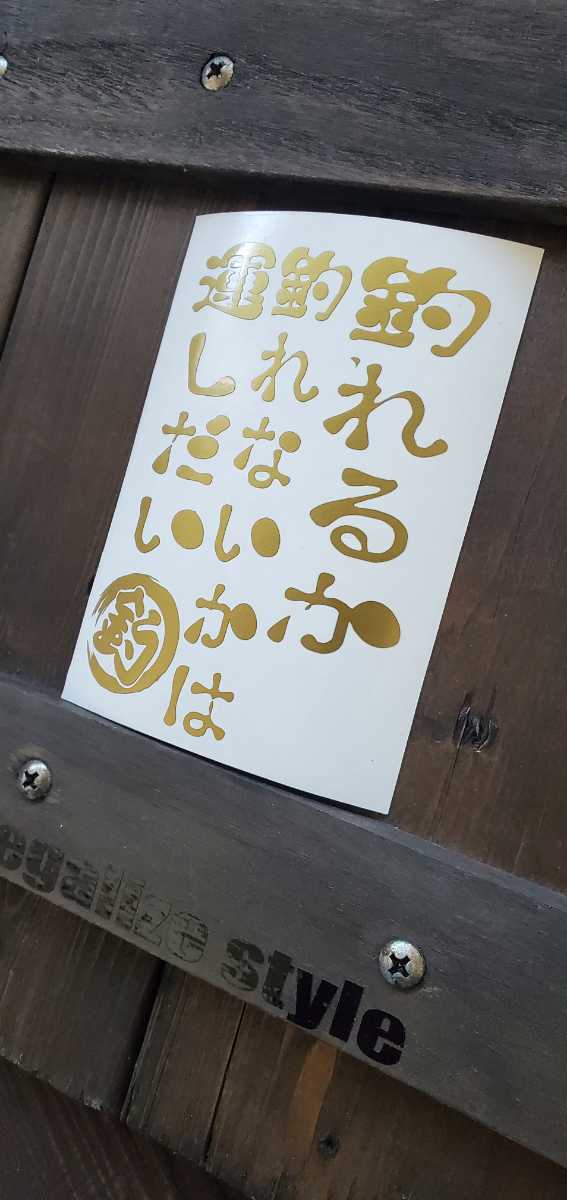 釣れるか
釣れないかは
運しだい
釣
egalize style